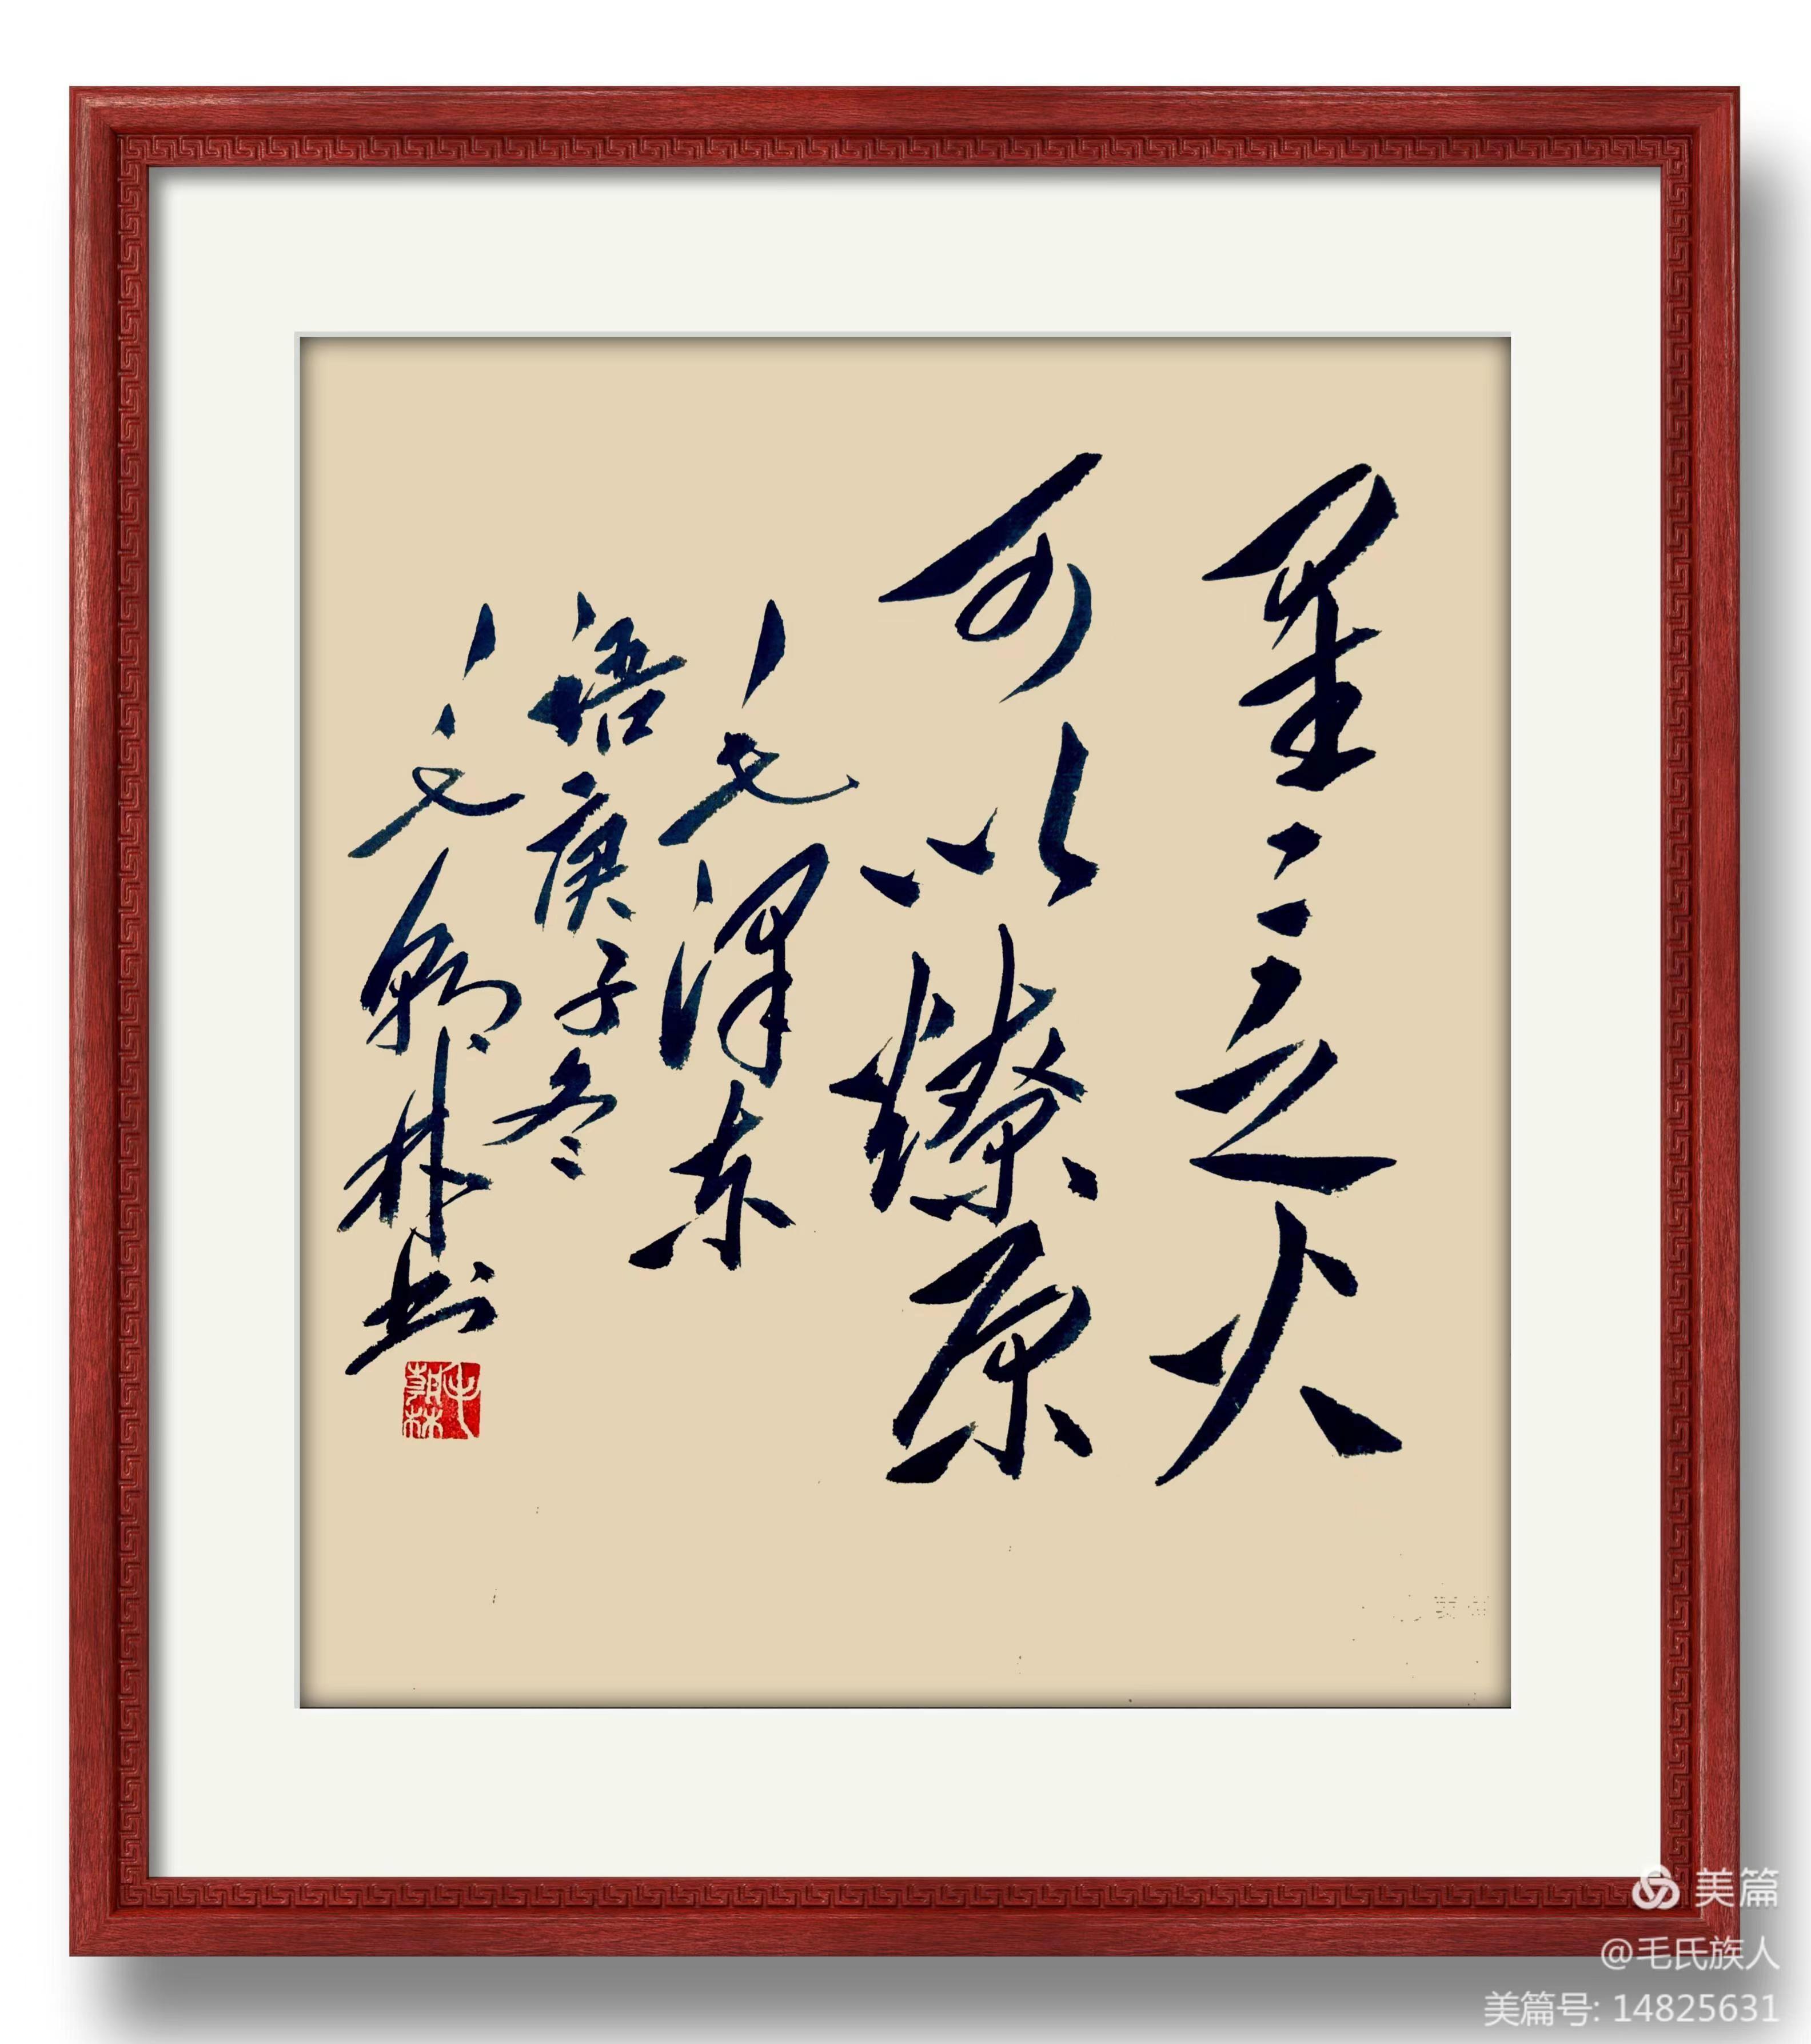 星星之火
可以燎原
毛泽东
语庚子冬
毛朝林书
毛朝林
美篇
@毛氏族人
美篇号: 14825631